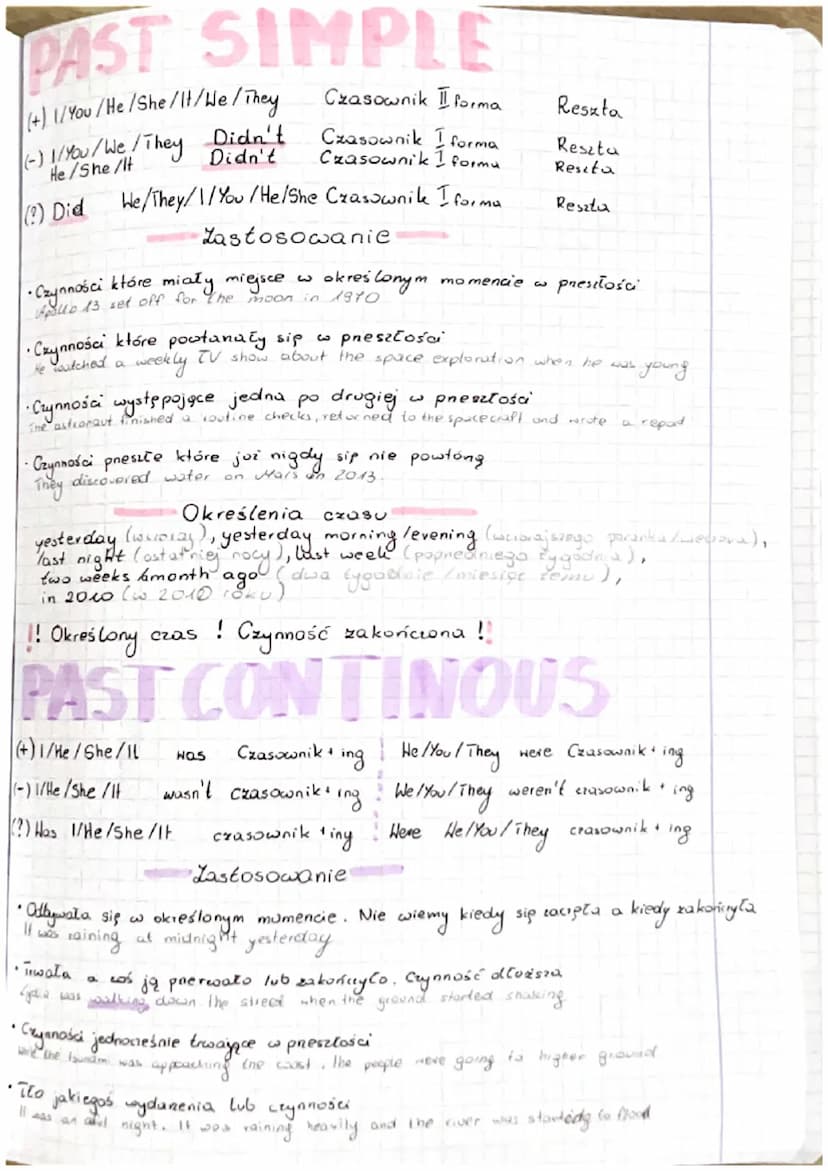 PAST SIMPLE
(+) I/You/He/She/It/We/They Czasownik II forma Reszta
(-) I/You/We/They Didn't Czasownik I forma Reszta
He/She/It Didn't Czasownik I forma Reszta
(?) Did We/They/I/You/He/She Czasownik I forma Reszta
Zastosowanie
• Czynności które miały miejsce w określonym momencie w przeszłości
Apollo 13 set off for the moon in 1970
• Czynności które powtarzały się w przeszłości
He watched a weekly TV show about the space exploration when he was young
• Czynności występujące jedna po drugiej w przeszłości
The astronaut finished a routine checks, returned to the spacecraft and wrote a report
• Czynności przeszłe które już nigdy się nie powtórzą
They discovered water on Mars in 2013.
Określenia czasu
yesterday (wczoraj), yesterday morning/evening (wczorajszego poranka/wieczora),
last night (ostatniej nocy), last week (poprzedniego tygodnia),
two weeks /month ago (dwa tygodnie/miesiąc temu),
in 2010 (w 2010 roku)
!! Określony czas ! Czynność zakończona !!
PAST CONTINOUS
(+) I/He/She/It was Czasownik + ing We/You/They were Czasownik + ing
(-) I/He/She/It wasn't czasownik + ing We/You/They weren't czasownik + ing
(?) Was I/He/She/It czasownik + ing Were We/You/They czasownik + ing
Zastosowanie
• Odbywała się w określonym momencie. Nie wiemy kiedy się zaczęła a kiedy zakończyła
It was raining at midnight yesterday
• Trwała a coś ją przerwało lub zakończyło. Czynność dłuższa
was walking down the street when the ground started shaking
• Czynności jednocześnie trwające w przeszłości
the tsunami was approaching the coast, the people were going to higher ground
• Tło jakiegoś wydarzenia lub czynności
It was an night. It was raining heavily and the river was starting to flood